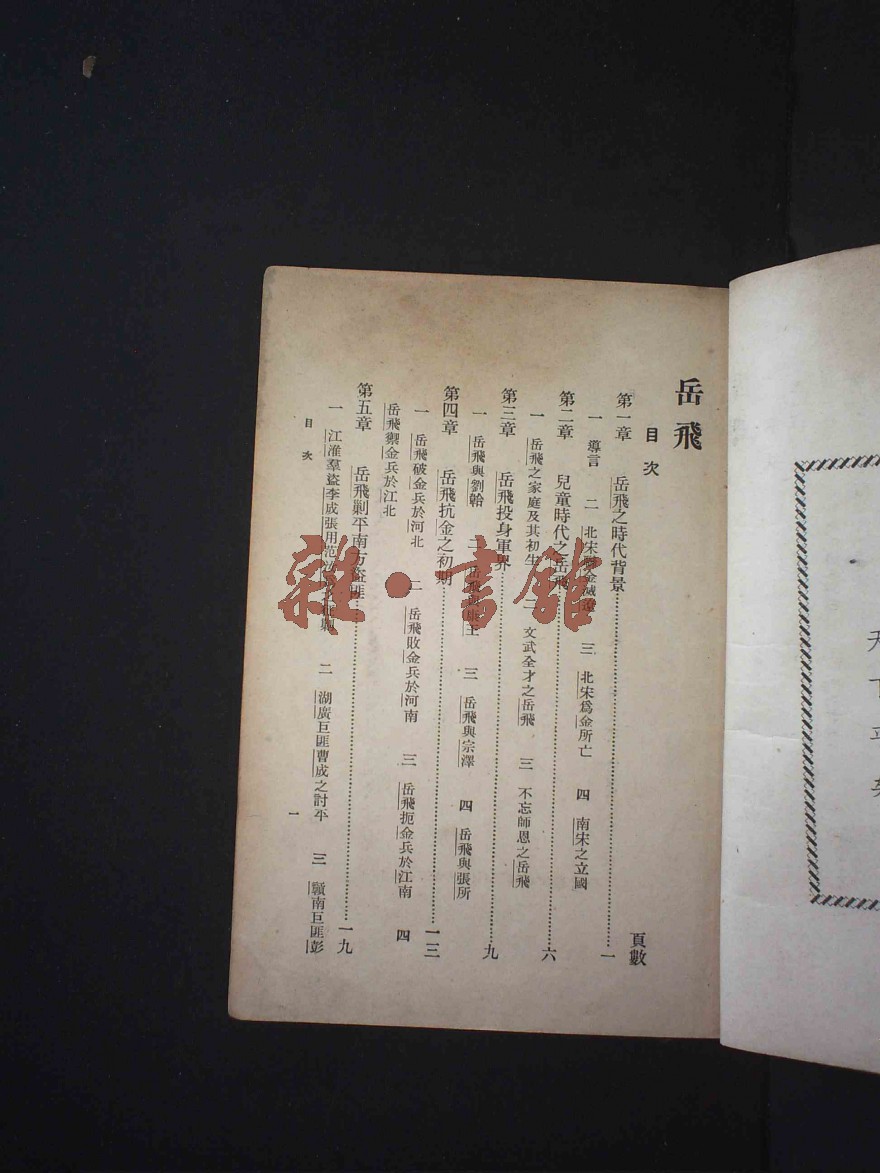 岳飛
目次
頁數
第一章 岳飛之時代背景……一
一 導言 二 北宋 金滅遼 三 北宋爲金所亡 四 南宋之立國
第二章 兒童時代之岳飛……六
一 岳飛之家庭及其初生 二 文武全才之岳飛 三 不忘師恩之岳飛
第三章 岳飛投身軍界……九
一 岳飛與劉韐 二 岳飛與康王 三 岳飛與宗澤 四 岳飛與張所
第四章 岳飛抗金之初期……一三
一 岳飛破金兵於河北 二 岳飛敗金兵於河南 三 岳飛扼金兵於江南 四
岳飛禦金兵於江北
第五章 岳飛剿平南方盜匪……一九
一 江淮羣盜李成張用范 二 湖廣巨匪曹成之討平 三 贛南巨匪彭
目次
一
雜·書館
天下平矣